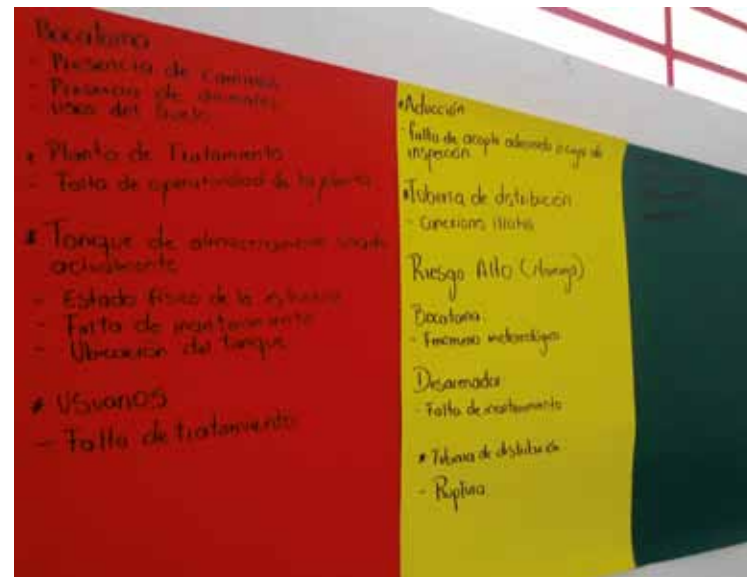 Bocatoma
- Presencia de caminos
- Presencia de animales
- Usos del Suelo
* Planta de Tratamiento
- Falta de operatividad de la planta
* Tanque de almacenamiento usado
actualmente
- Estado físico de la estructura
- Falta de mantenimiento
- Ubicación del tanque
* Usuarios
- Falta de tratamiento
* Aducción
- Falta de acople adecuado a caja de
inspección
* Tubería de distribución
- Conexiones ilícitas
Riesgo Alto
Bocatoma
- Fenómeno meteorológico
Desarenador
- Falta de mantenimiento
* Tubería de distribución
- Ruptura